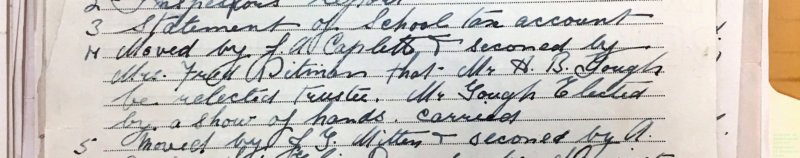 2 Inspectors Report
3 Statement of School tax account
4 Moved by J. A Caplett & seconed by
Mrs. Fred Ditman that Mr H. B. Gough
be relected trustee. Mr Gough Elected
by a show of hands. carried
5 Moved by J. G. Mitten & seconed by A.